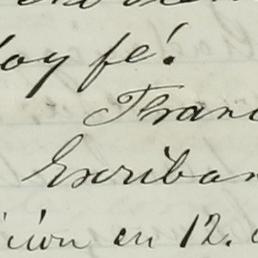 doy fé.
Franc
Escriban
ición en 12.